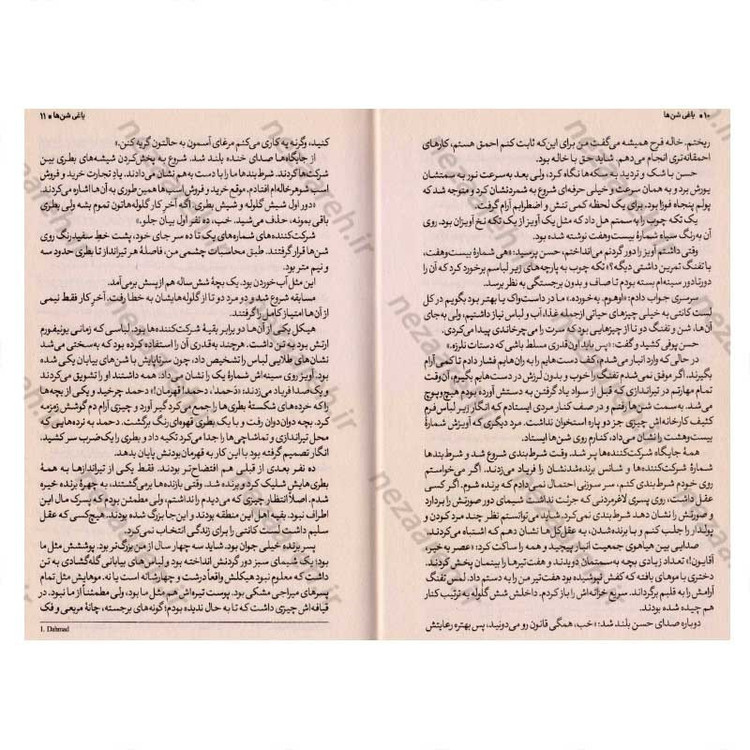 ۱۰ • یاغی شن‌ها
ریختم. خاله فرح همیشه می‌گفت من برای این‌که ثابت کنم احمق هستم، کارهای
احمقانه‌تری انجام می‌دهم. شاید حق با خاله بود.
حسن با شک و تردید به سکه‌ها نگاه کرد، ولی بعد به‌سرعت نور به سمتشان
یورش برد و به همان سرعت و خیلی حرفه‌ای شروع به شمردنشان کرد و متوجه شد که
پولم پنجاه فوزا بود. برای یک لحظه کمی تنش و اضطرابم آرام گرفت.
یک تکه چوب را به سمتم هل داد که مثل یک آویز از یک تکه نخ آویزان بود. روی
آن به‌رنگ سیاه شمارهٔ بیست‌وهفت نوشته شده بود.
وقتی داشتم آویز را دور گردنم می‌انداختم، حسن پرسید: «هی شمارهٔ بیست‌وهفت،
با تفنگ تمرین داشتی دیگه؟» تکه چوب به پارچه‌های زیر لباسم برخورد کرد که آن را
دورتادور سینه‌ام بسته بودم تا صاف و بدون برجستگی به نظر برسد.
سرسری جواب دادم: «اوهوم. یه‌خورده.» ما در داست‌واک یا بهتر بود بگویم در کل
لست کانتی به خیلی چیزهای حیاتی ازجمله غذا، آب و لباس نیاز داشتیم، ولی به‌جای
آن‌ها، شن و تفنگ دو تا از چیزهایی بود که سرت را می‌چرخاندی پیدا می‌کردی.
حسن پوفی کشید و گفت: «پس باید اون‌قدری مسلط باشی که دستات نلرزه.»
در حالی که وارد انبار می‌شدم، کف دست‌هایم را به ران‌هایم فشار دادم تا کمی آرام
بگیرند. اگر موفق نمی‌شدم تفنگ را خوب و بدون لرزش در دست‌هایم بگیرم، آن‌وقت
تمام مهارتم در تیراندازی که قبل از سواد یاد گرفتن به دستش آورده بودم هیچ‌وپوچ
می‌شد. به سمت شن‌ها رفتم و در صف کنار مردی ایستادم که انگار زیر لباس فرم
کثیف کارخانه‌اش چیزی جز دو پاره استخوان نداشت. مرد دیگری که آویزش شمارهٔ
بیست‌وهشت را نشان می‌داد، کنارم روی شن‌ها ایستاد.
همهٔ جایگاه شرکت‌کننده‌ها پر شد. وقت شرط‌بندی شروع شد و شرط‌بندها
شمارهٔ شرکت‌کننده‌ها و شانس برنده‌شدنشان را فریاد می‌زدند. اگر می‌خواستم
روی خودم شرط‌بندی کنم، سر سوزنی احتمال نمی‌دادم که برنده شوم. اگر کسی
عقل داشت، روی پسری لاغرمردنی که حرئت نداشت شیمای دور صورتش را بردارد
و صورتش را نشان دهد شرط‌بندی نمی‌کرد. شاید می‌توانستم نظر چند مرد کودن و
پولدار را جلب کنم و با برنده‌شدن، به عقل‌کل‌ها نشان دهم که اشتباه می‌کردند.
صدایی بین هیاهوی جمعیت انبار پیچید و همه را ساکت کرد: «عصر به‌خیر،
آقایون!» تعداد زیادی بچه به‌سمتمان دویدند و هفت‌تیرها را بینمان پخش کردند.
دختری با موهای بافته که کفش نپوشیده بود هفت‌تیر من را به دستم داد. لمس تفنگ
آرامش را به قلبم برگرداند. سریع خزانه‌اش را باز کردم. داخلش شش گلوله به ترتیب کنار
هم چیده شده بودند.
دوباره صدای حسن بلند شد: «خب، همگی قانون رو می‌دونید، پس بهتره رعایتش
یاغی شن‌ها • ۱۱
کنید، وگرنه یه کاری می‌کنم مرغای آسمون به حالتون گریه کنن.»
از جایگاه‌ها صدای خنده بلند شد. شروع به پخش‌کردن شیشه‌های بطری بین
شرکت‌ها گردند. شرط‌بندها ما را با دست به‌هم نشان می‌دادند. یاد تجارت خرید و فروش
اسب شوهرخاله‌ام افتادم. موقع خرید و فروش اسب‌ها همین‌طوری به آن‌ها اشاره می‌کردند.
«دور اول شیش گلوله و شیش بطری. اگه آخر کار گلوله‌هاتون تموم بشه ولی بطری
باقی بمونه، حذف می‌شید. خب، ده نفر اول بیان جلو.»
شرکت‌کننده‌های شماره‌های یک تا ده سر جای خود، پشت خط سفیدرنگ روی
شن‌ها قرار گرفتند. طبق محاسبات چشمی من، فاصلهٔ هر تیرانداز تا بطری حدود سه
و نیم متر بود.
این مثل آب‌خوردن بود. یک بچهٔ شش ساله هم از پسش برمی‌آمد.
مسابقه شروع شد و دو مرد دو تا از گلوله‌هایشان به خطا رفت. آخرِ کار فقط نیمی
از آن‌ها امتیاز کامل را گرفتند.
هیکل یکی از آن‌ها دو برابر بقیهٔ شرکت‌کننده‌ها بود. لباسی که زمانی یونیفورم
ارتش بود به تن داشت. هرچند به‌قدری آن را استفاده کرده بود که به‌سختی می‌شد
نشان‌های طلایی لباس را تشخیص داد، چون سرتاپایش با شن‌های بیابان یکی شده
بود. آویز روی سینه‌اش شمارهٔ یک را نشان می‌داد. همه داشتند او را تشویق می‌کردند
و یک‌صدا فریاد می‌زدند: «دَحمد۱، دحمد! قهرمان!» دحمد چرخید و یکی از بچه‌ها
را که خرده‌های شکستهٔ بطری‌ها را جمع می‌کرد گیر آورد و چیزی آرام دم گوشش زمزمه
کرد. بچه دوان‌دوان رفت و با یک بطری قهوه‌ای‌رنگ برگشت. دحمد به نرده‌هایی که
محل تیراندازی و تماشاچی‌ها را جدا می‌کرد تکیه داد و بطری را یک‌ضرب سر کشید.
انگار تصمیم گرفته بود با این کار به قهرمان‌بودنش پایان بدهد.
ده نفر بعدی از قبلی هم افتضاح‌تر بودند. فقط یکی از تیراندازها به همهٔ
بطری‌هایش شلیک کرد و برنده شد. وقتی بازنده‌ها برمی‌گشتند، به چهرهٔ برنده خیره
شدم. اصلاً انتظار چیزی که می‌دیدم را نداشتم، ولی مطمئن بودم که پسرک مال این
اطراف نبود. بقیه اهل این منطقه بودند و این‌جا بزرگ شده بودند. هیچ‌کسی که عقل
سلیم داشت لست کانتی را برای زندگی انتخاب نمی‌کرد.
پسر برنده خیلی جوان بود. شاید سه چهار سال از من بزرگ‌تر بود. پوششش مثل ما
بود؛ یک شیمای سبز دور گردنش انداخته بود و لباس‌های بیابانی گله‌گشادی به تن
داشت که معلوم نبود هیکلش واقعاً درشت و چهارشانه است یا نه. موهایش مثل تمام
پسرهای میراجی مشکی بود. پوست تیره‌اش هم مثل ما بود، ولی مطمئناً از ما نبود. در
قیافه‌اش چیزی داشت که تا به حال ندیده بودم؛ گونه‌های برجسته، چانهٔ مربعی و فک
1. Dahmad
nezaameh.ir